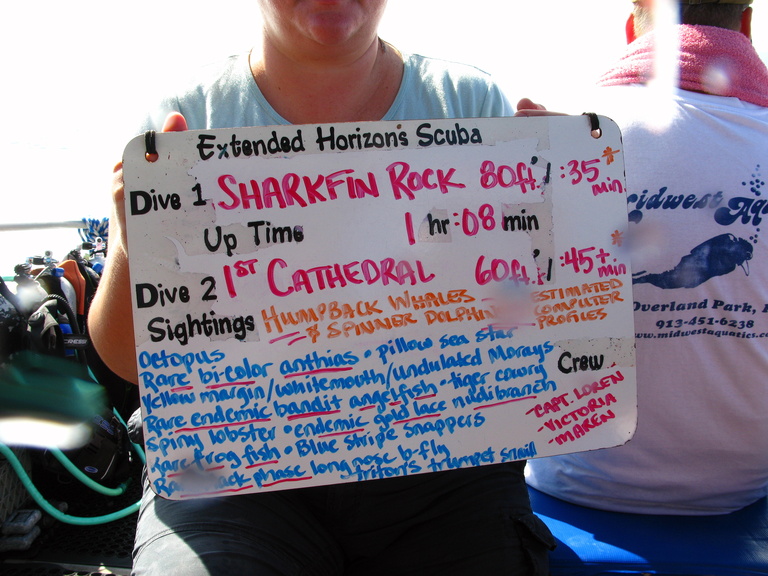 Extended Horizon's Scuba
Dive 1 SHARKFIN ROCK 80ft./ :35 min*
Up Time 1 hr :08 min
Dive 2 1ST CATHEDRAL 60ft./ :45+ min*
Sightings HUMPBACK WHALES
& SPINNER DOLPHIN
ESTIMATED
COMPUTER
PROFILES
Octopus
Rare bi-color anthias • pillow sea star
Yellow margin/whitemouth/undulated Morays
Rare endemic bandit angelfish • tiger cowry
Spiny lobster • endemic gold lace nudibranch
Rare frog fish • Blue stripe snappers
phase long nose b-fly
triton's trumpet snail
Crew
- CAPT. LOREN
- VICTORIA
- MAREN
Overland Park,
913-451-6238